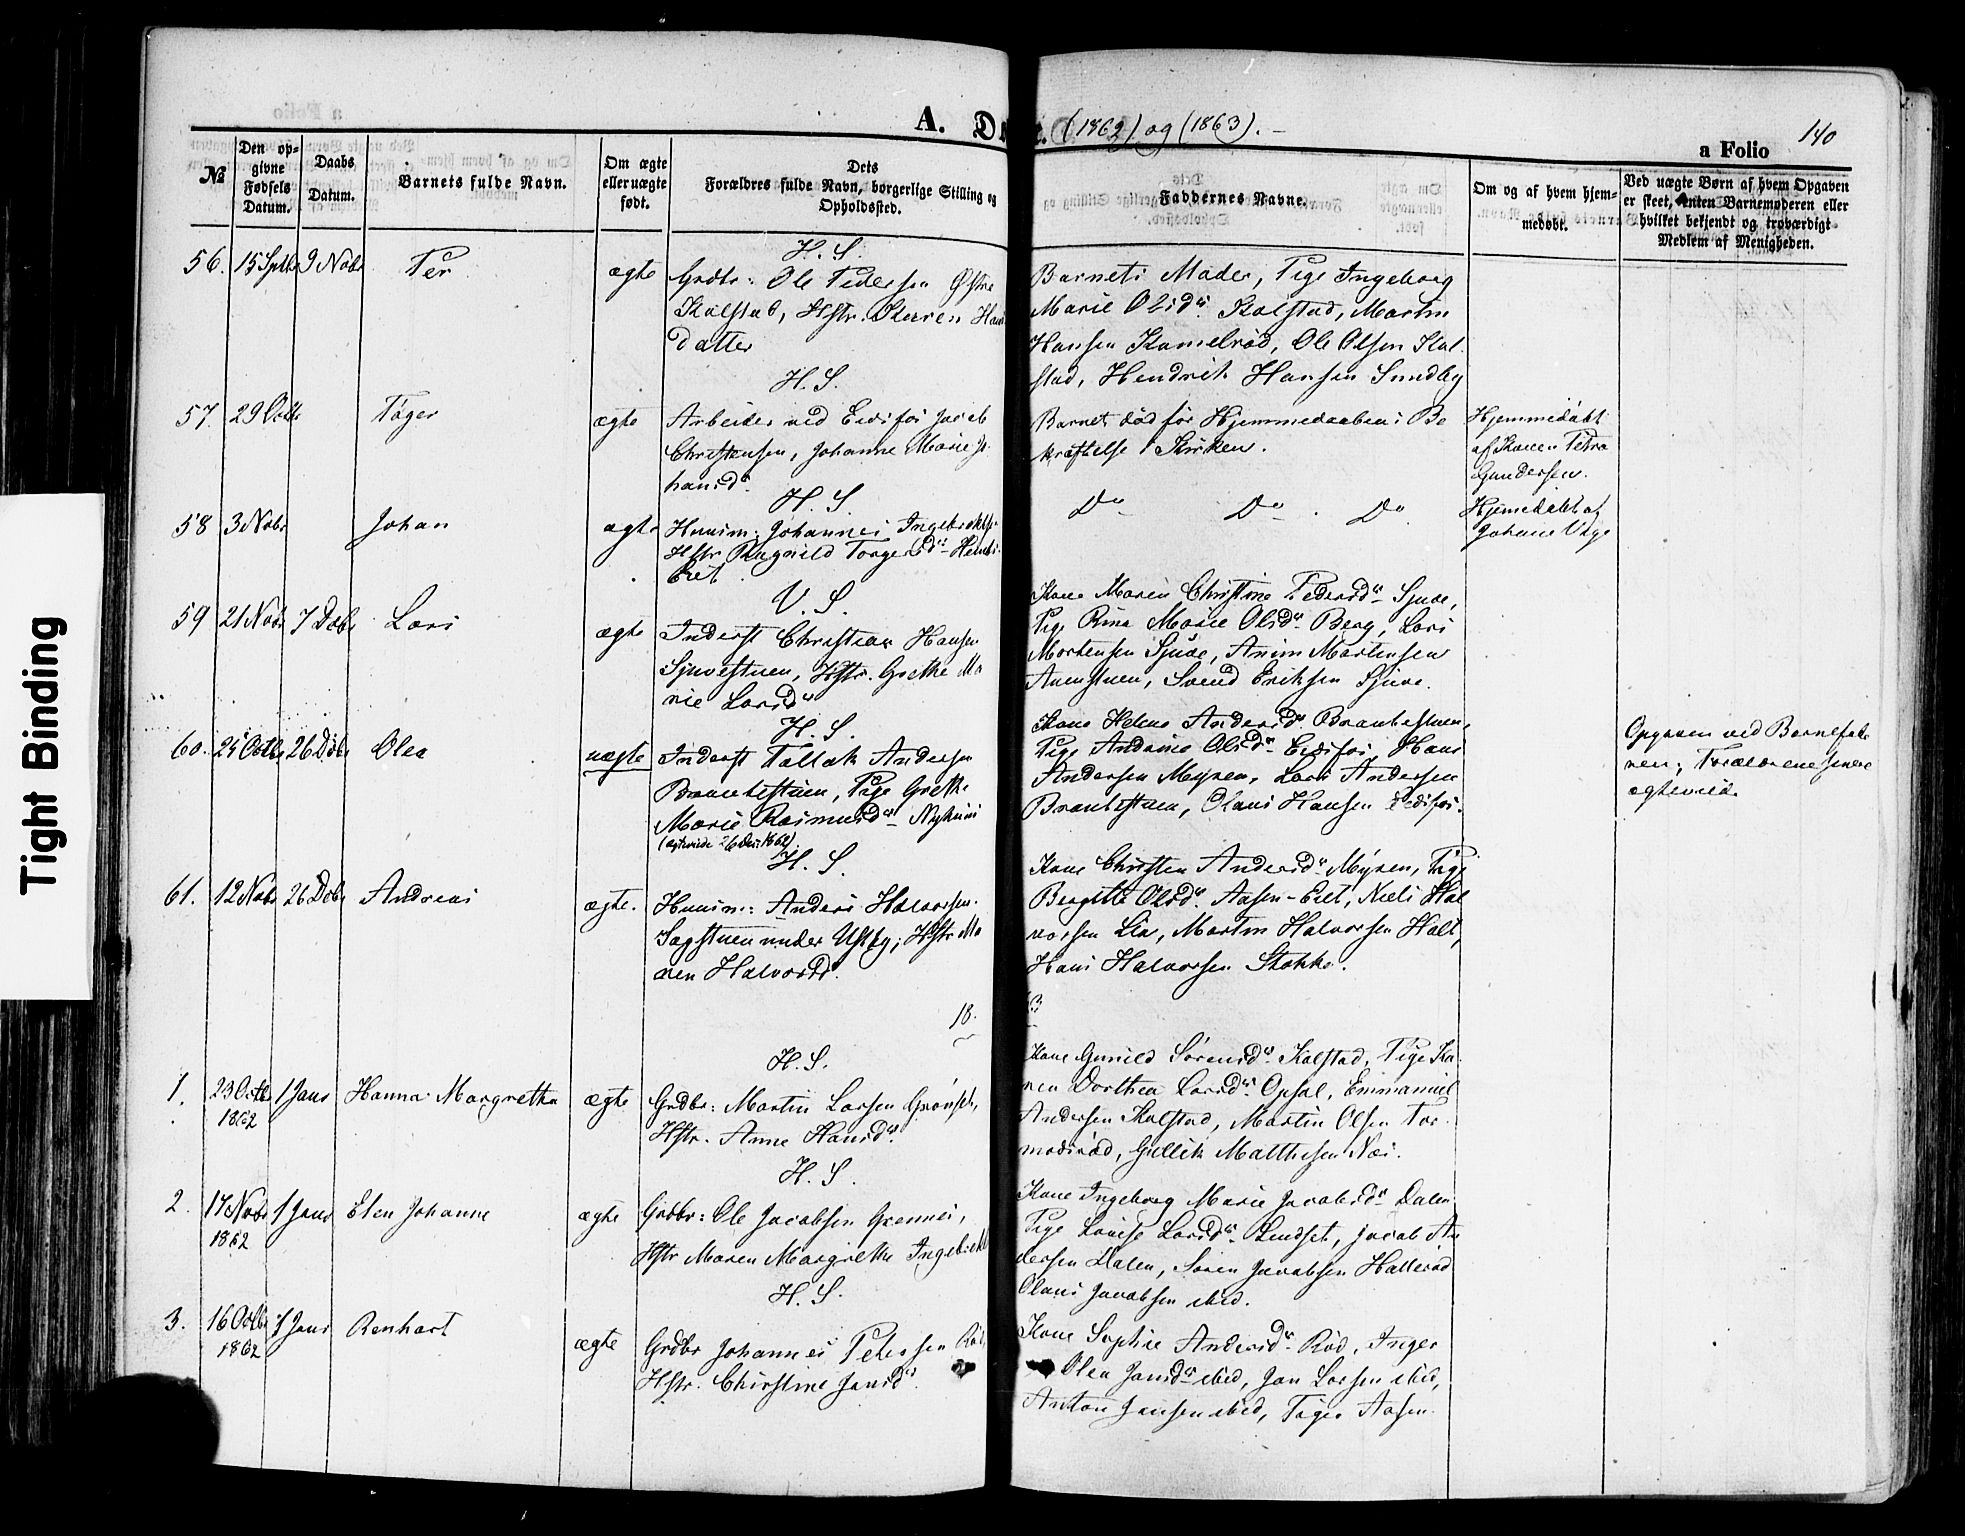 Tight Binding
A. D (1862) og (1863).
a Folio 140
№
Den op-
givne
Fødsels
Datum.
Daabs
Datum.
Barnets fulde Navn.
Om ægte
eller uægte
født.
Dets
Forældres fulde Navn, borgerlige Stilling og
Opholdssted.
Faddernes Navne.
Om og af hvem hjem-
medøbt.
Ved uægte Børn af hvem Opgaven
er skeet, enten Barnemoderen eller
hvilket bekjendt og troværdigt
Medlem af Menigheden.
H. S.
56. 15 Septbr 9 Novbr Per ægte
Grdbr: Ole Pedersen Østre
Kalstad, Hstr. Karen Hans
datter
Barnets Moder, Pige Ingeborg
Marie Olsdr Kalstad, Martin
Hansen Kamelrød, Ole Olsen Kal-
stad, Hendrik Hansen Sundby
H. S.
57. 29 Octbr Tøger ægte
Arbeider ved Eidsfos Jacob
Christensen, Johanne Marie Jo-
hansdr
Barnet død før Hjemmedaabens Be
kræftelse i Kirken.
Hjemmedøbt
af Konen Petra
Gundersen.
H. S.
58 3 Novbr Johan ægte
Huusm: Johannes Ingebrektsn
Hstr Ragnild Torgersdr
Eiet
Do Do Do
Hjemedøbt af
V. S.
59 21 Novbr 7 Decbr Lars ægte
Inderst Christian Hansen
Sjuestuen, Hstr. Grethe Ma
rie Larsdr
Kone Maren Christine Pedersdr Sjue,
Pige Rina Marie Olsdr Berg, Lars
Mortensen Sjue, Anun Martinsen
Svend Eriksen Sjue.
H. S.
60. 25 Octbr 26 Decbr Olea uægte
Inderst Tollak Andersen
Brantestuen, Pige Grethe
Marie Rasmusdr
(ægteviede 26 Dec. 1862)
Kone Helene Andersdr Brantestuen,
Pige Andrine Olsdr Eidsfos, Hans
Andersen Myren, Lars Andersen
Brantestuen, Olaus Hansen Eidsfos.
Opgaven ved Barnefade
ren; Forældrene senere
ægteviede.
H. S.
61. 12 Novbr 26 Decbr Andreas ægte.
Huusm: Anders Halvorsen
Sagstuen under Hstr Ma
ren Halvorsdr.
Kone Christen Andersdr Myren, Pige
Bergitte Olsdr. Aasen-Eiet, Niels Hal
vorsen Lia, Martin Halvorsen Holt,
Hans Halvorsen Stokke.
18 63
H. S.
1. 23 Octbr 1862 1 Janr Hanna Margrethe ægte
Grdbr: Martin Larsen Grønset,
Hstr. Anne Hansdr.
Kone Gunild Sørensdr Kalstad, Pige Ka-
ren Dorthea Larsdr Opsal, Emmanuel
Andersen Kalstad, Martin Olsen Tor-
modsrød, Gullik Matthesen Næs.
H. S.
2. 17 Novbr 1862 1 Janr Elen Johanne ægte
Grdbr: Ole Jacobsen Grennes,
Hstr Maren Margrethe Ingebrekt
Kone Ingeborg Marie Jacobsdr Dalen
Pige Louise Larsdr Lindset, Jacob An
dersen Dalen, Søren Jacobsen Hallerød
Olaus Jacobsen ibid.
H. S.
3. 16 Octbr 1862 1 Janr Renhart ægte
Grdbr Johannes Petersen Rød,
Hstr. Christine Jansdr.
Kone Sophie Andersdr Rød, Inger
Olea Jansdr ibid, Jan Larsen ibid,
Anton Jansen ibid, Tøger Aasen.